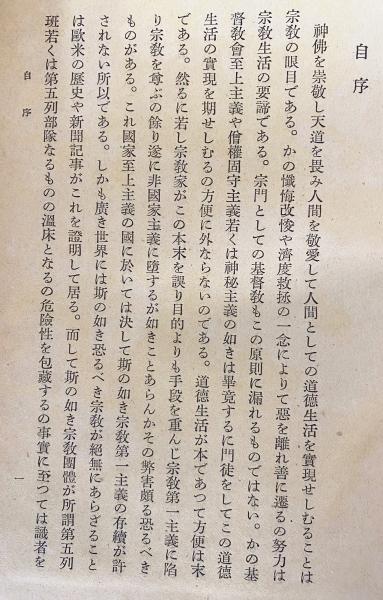 自序
神佛を崇敬し天道を畏み人間を敬愛して人間としての道德生活を實現せしむることは
宗敎の眼目である。かの懺悔改悛や濟度救拯の一念によりて惡を離れ善に遷るの努力は
宗敎生活の要諦である。宗門としての基督敎もこの原則に漏れるものではない。かの基
督敎會至上主義や僧權固守主義若くは神秘主義の如きは畢竟するに門徒をしてこの道德
生活の實現を期せしむるの方便に外ならないのである。道德生活が本であつて方便は末
である。然るに若し宗敎家がこの本末を誤り目的よりも手段を重んじ宗敎第一主義に陷
り宗敎を尊ぶの餘り遂に非國家主義に墮するが如きことあらんかその弊害頗る恐るべき
ものがある。これ國家至上主義の國に於いては決して斯の如き宗敎第一主義の存續が許
されない所以である。しかも廣き世界には斯の如き恐るべき宗敎が絕無にあらざること
は歐米の歷史や新聞記事がこれを證明して居る。而して斯の如き宗敎團體が所謂第五列
班若くは第五列部隊なるものの溫床となるの危險性を包藏するの事實に至つては識者を
自序
一